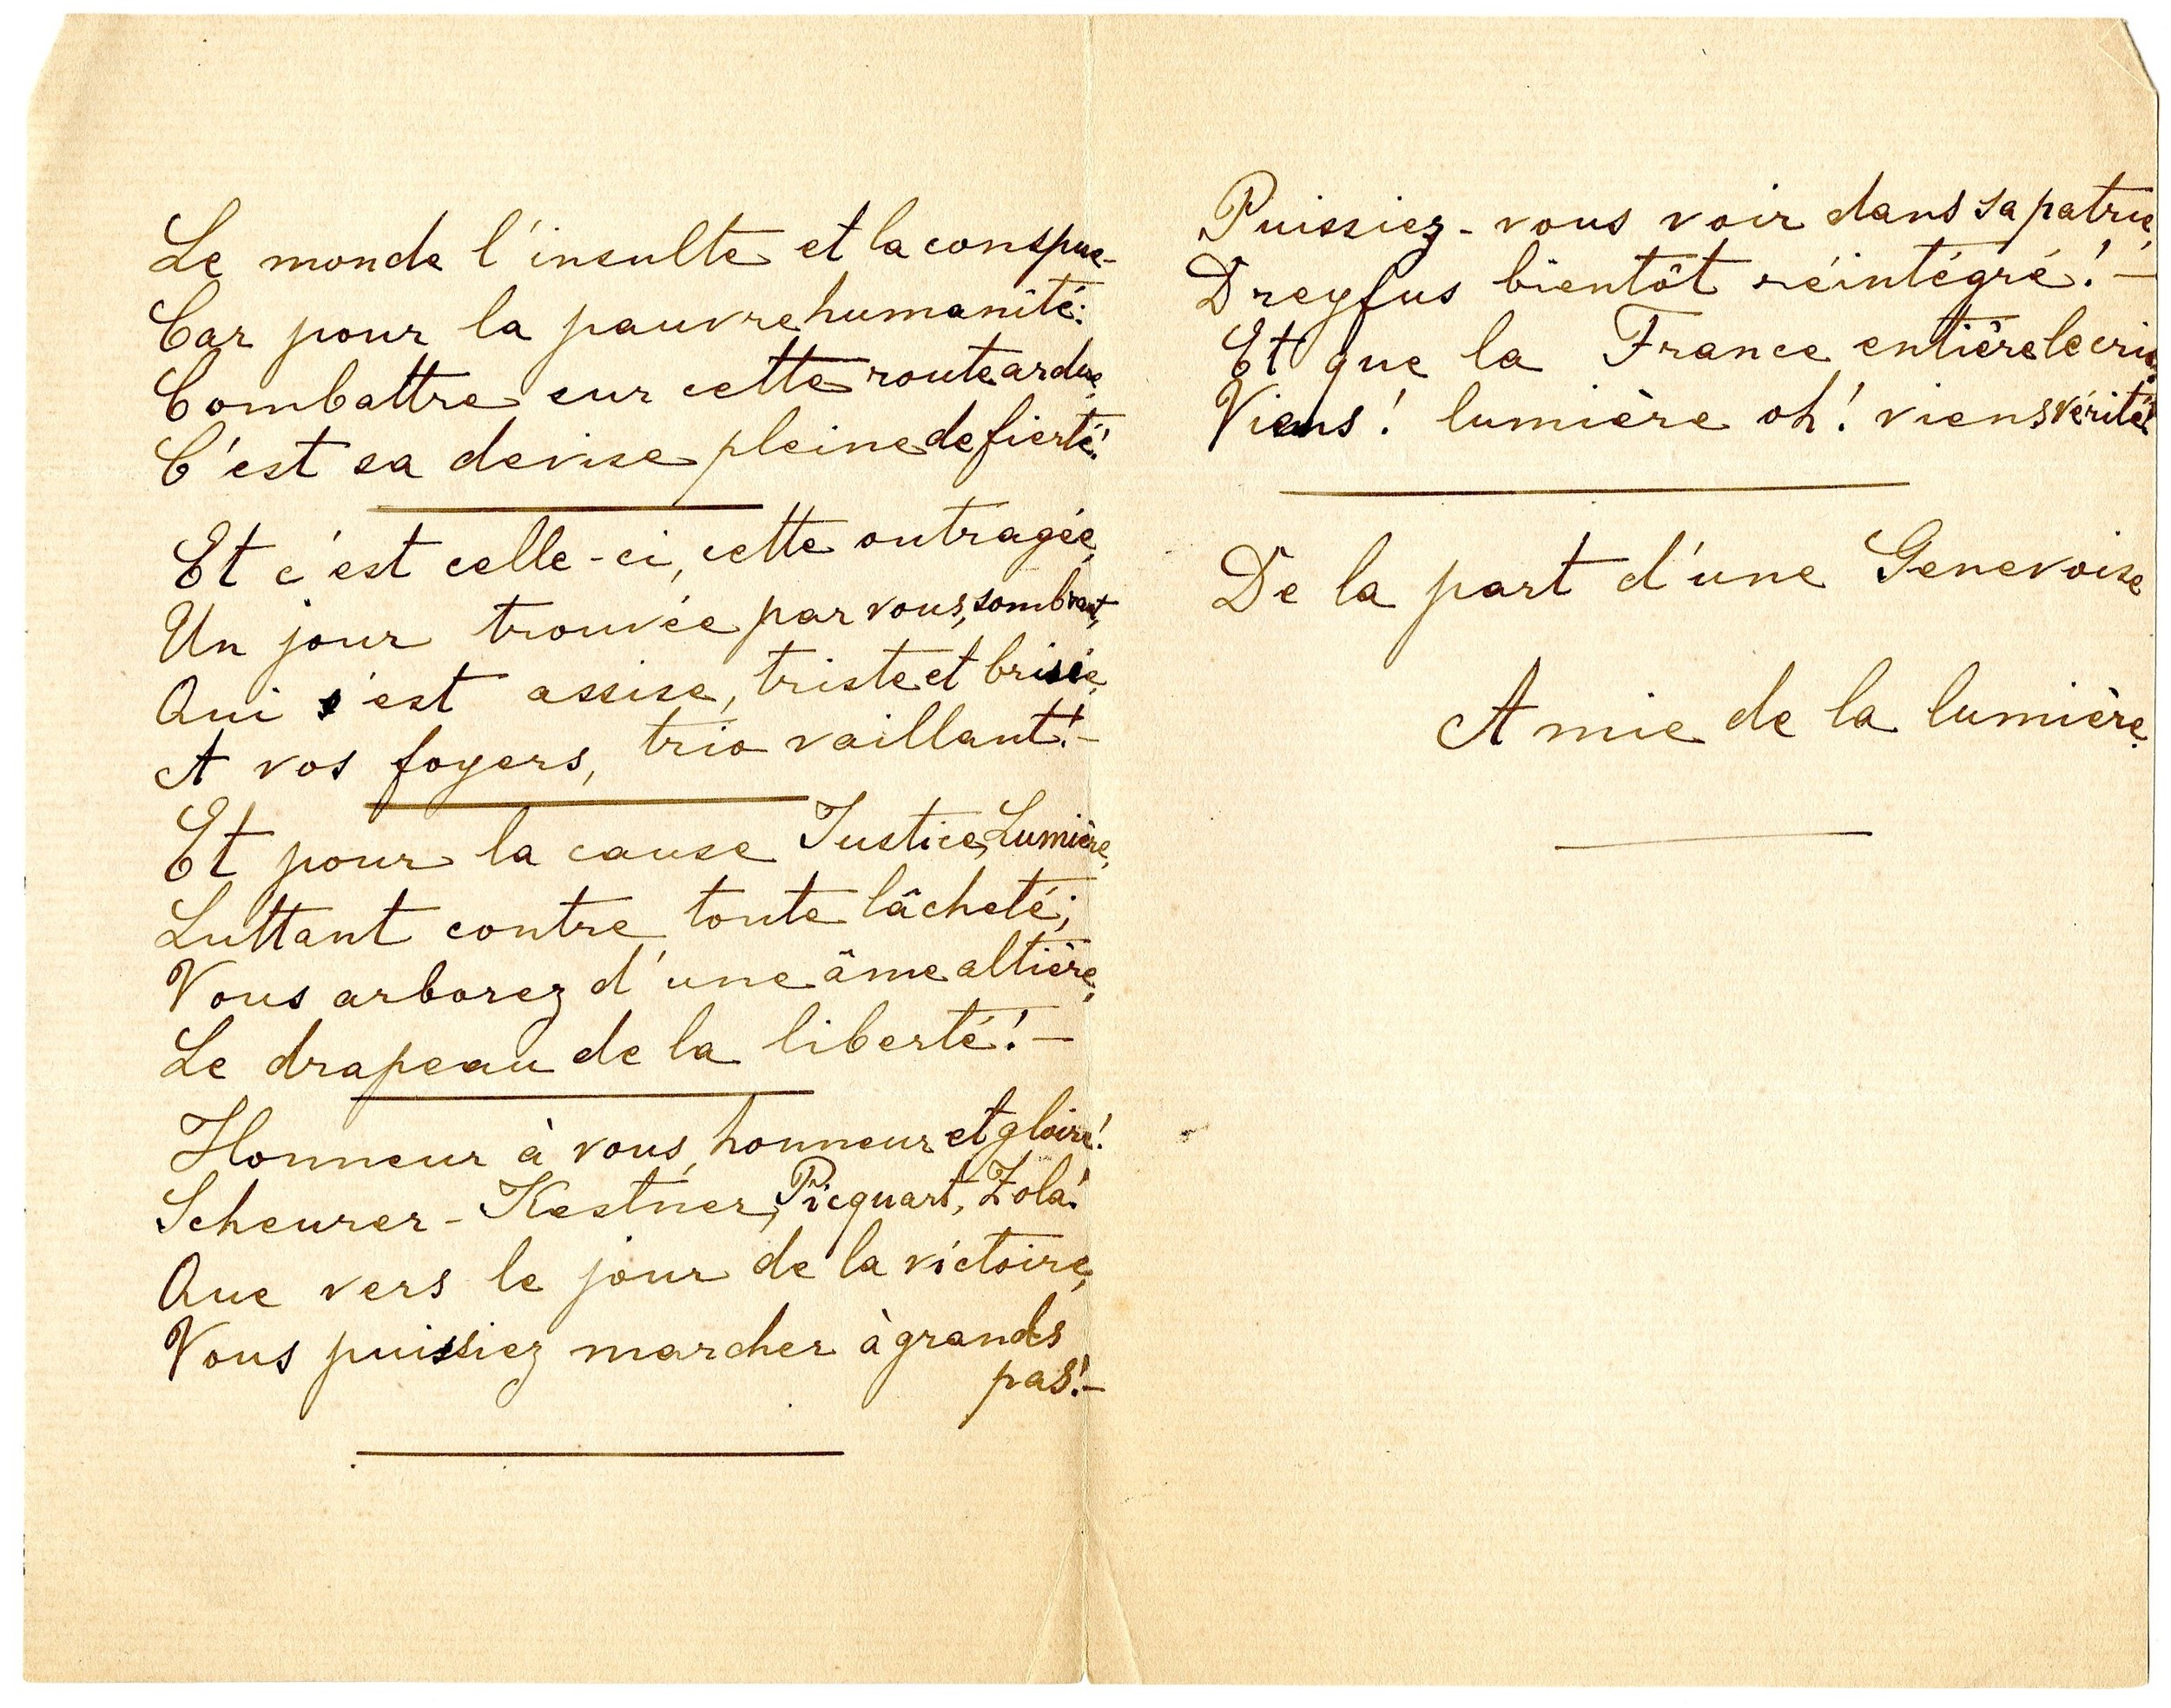 Le monde l'insulte et la conspue-
Car pour la pauvre humanité:
Combattre sur cette route ardue,
C'est sa devise pleine de fierté!
Et c'est celle-ci, cette outragée,
Un jour trouvée par vous, sombrant,
Qui s'est assise, triste et brisée,
A vos foyers, trio vaillant!-
Et pour la cause Justice, Lumière,
Luttant contre toute lâcheté;
Vous arborez d'une âme altière,
Le drapeau de la liberté!-
Honneur à vous, honneur et gloire!
Scheurer-Kestner, Picquart, Zola!
Que vers le jour de la victoire,
Vous puissiez marcher à grands
pas!-
Puissiez-vous voir dans sa patrie,
Dreyfus bientôt réintégré!-
Et que la France entière le crie:
Viens! lumière oh! viens vérité!
De la part d'une Genevoise
Amie de la lumière.